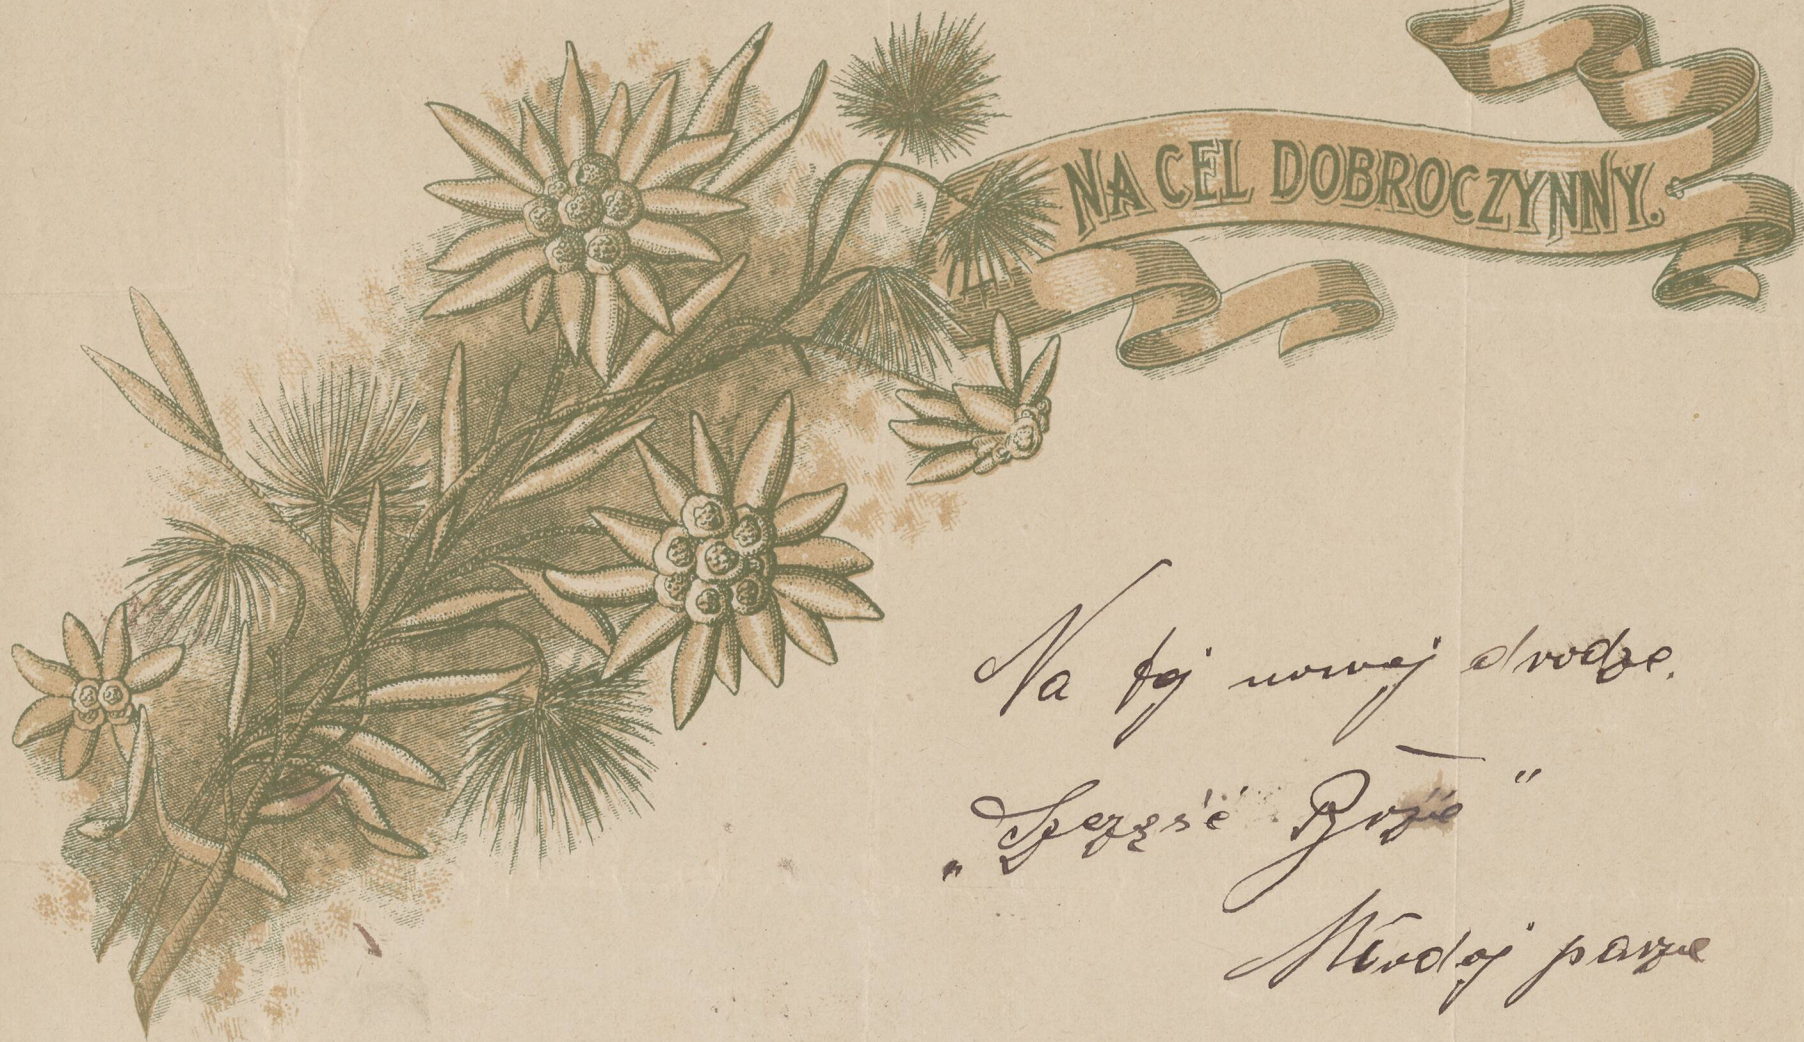 NA CEL DOBROCZYNNY.
Na tej nowej drodze.
„Szczęść Boże"
Młodej parze